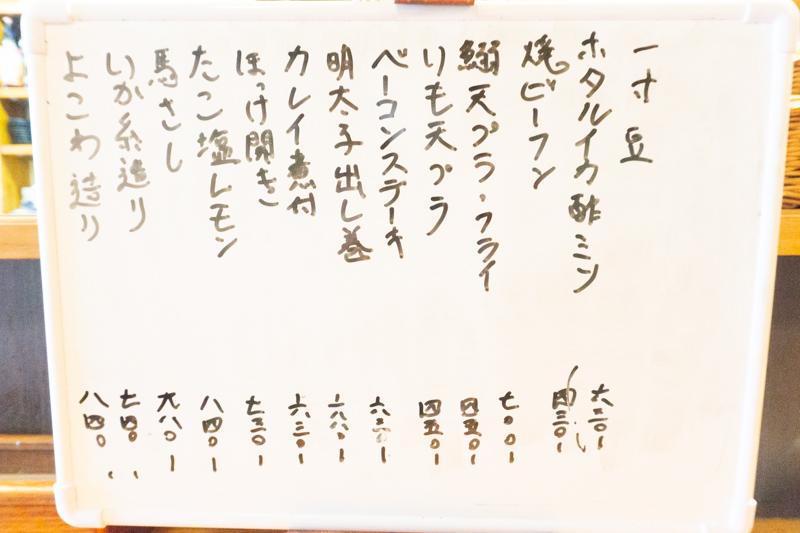 一寸豆
ホタルイカ酢ミソ
焼ビーフン
鰯天プラ・フライ
りも天プラ
ベーコンステーキ
明太子出し巻
カレイ煮付
ほっけ開き
たこ塩レモン
馬さし
いか糸造り
よこわ造り
六三〇ー
四三〇ー
七〇〇ー
四五〇ー
四五〇ー
六三〇ー
六三〇ー
七三〇ー
八四〇ー
九八〇ー
七四〇ー
八四〇ー